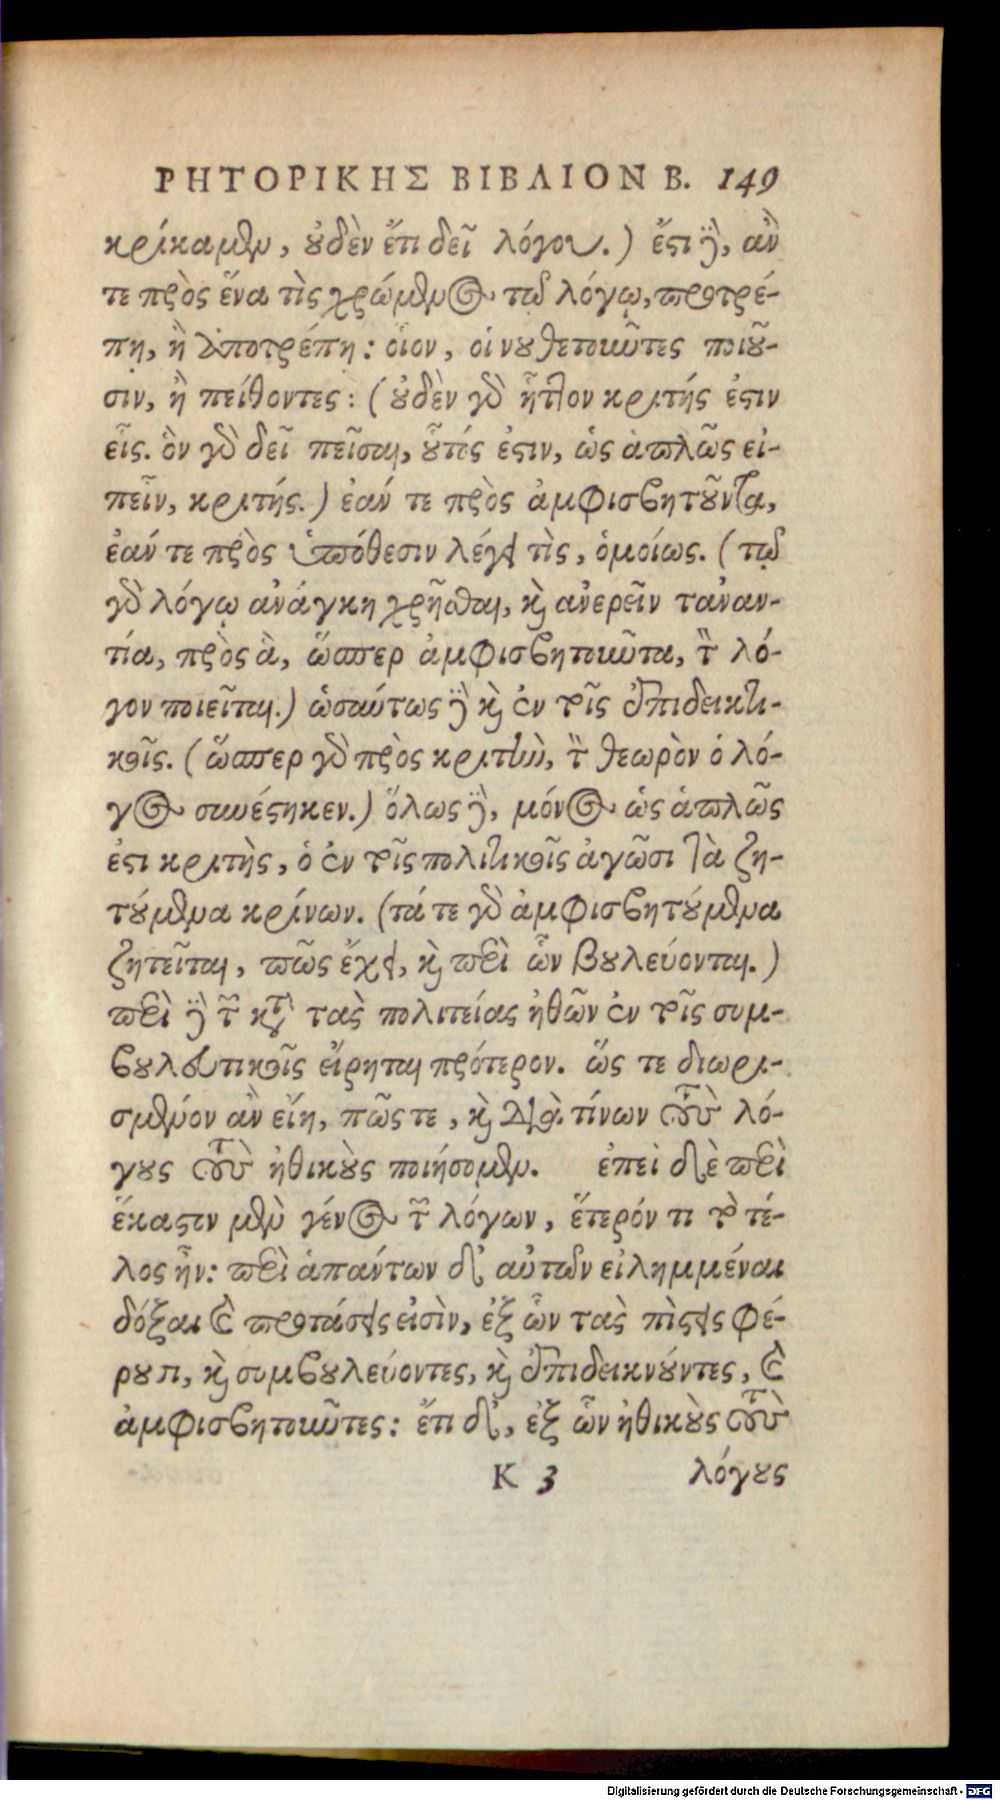 ΡΗΤΟΡΙΚΗΣ ΒΙΒΛΙΟΝ Β. 149
κρίκαμεν, οὐδὲν ἔτι δεῖ λόγου.) ἔστι δὲ, ἄν
τε πρὸς ἕνα τὶς χρώμενος τῷ λόγῳ, προτρέ-
πῃ, ἢ ἀποτρέπῃ: οἷον, οἱ νουθετοῦντες ποιοῦ-
σιν, ἢ πείθοντες: (οὐδὲν γὰρ ἧττον κριτής ἐστιν
εἷς. ὃν γὰρ δεῖ πεῖσαι, οὗτός ἐστιν, ὡς ἁπλῶς εἰ-
πεῖν, κριτής.) ἐάν τε πρὸς ἀμφισβητοῦντα,
ἐάν τε πρὸς ὑπόθεσιν λέγει τὶς, ὁμοίως. (τῷ
γὰρ λόγῳ ἀνάγκη χρῆσθαι, καὶ ἀνερεῖν τἀναν-
τία, πρὸς ἃ, ὥσπερ ἀμφισβητοῦντα, τὸν λό-
γον ποιεῖται.) ὡσαύτως δὲ καὶ ἐν τοῖς ἐπιδεικτι-
κοῖς. (ὥσπερ γὰρ πρὸς κριτὴν, τὸν θεωρὸν ὁ λό-
γος συνέστηκεν.) ὅλως δὲ, μόνος ὡς ἁπλῶς
ἐστι κριτὴς, ὁ ἐν τοῖς πολιτικοῖς ἀγῶσι τὰ ζη-
τούμενα κρίνων. (τά τε γὰρ ἀμφισβητούμενα
ζητεῖται, πῶς ἔχει, καὶ περὶ ὧν βουλεύονται.)
περὶ δὲ τῶν κατὰ τὰς πολιτείας ἠθῶν ἐν τοῖς συμ-
βουλευτικοῖς εἴρηται πρότερον. ὥς τε διωρι-
σμένον ἂν εἴη, πῶς τε, καὶ διὰ τίνων τοὺς λό-
γους τοὺς ἠθικοὺς ποιήσομεν. ἐπεὶ δὲ περὶ
ἕκαστιν μὲν γένος τῶν λόγων, ἕτερόν τι τὸ τέ-
λος ἦν: περὶ ἁπάντων δ' αὐτῶν εἰλημμέναι
δόξαι καὶ προτάσεις εἰσὶν, ἐξ ὧν τὰς πίστεις φέ-
ρουσι, καὶ συμβουλεύοντες, καὶ ἐπιδεικνύντες, καὶ
ἀμφισβητοῦντες: ἔτι δ', ἐξ ὧν ἠθικοὺς τοὺς
K 3 λόγους
Digitalisierung gefördert durch die Deutsche Forschungsgemeinschaft - DFG